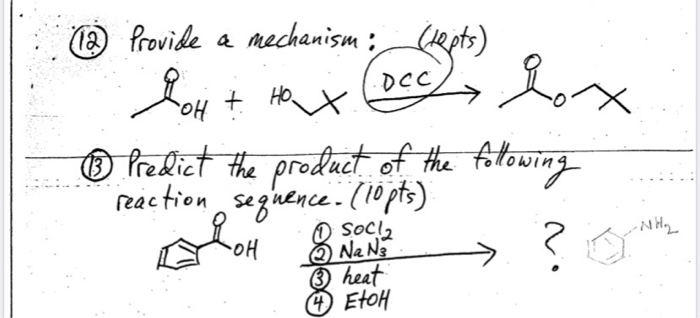 12 Provide a mechanism: (10 pts)
O OH + HO DCC O O
13 Predict the product of the following
reaction sequence. (10 pts)
O OH ① SOCl₂ ? NH₂
② NaN₃
③ heat
④ EtOH